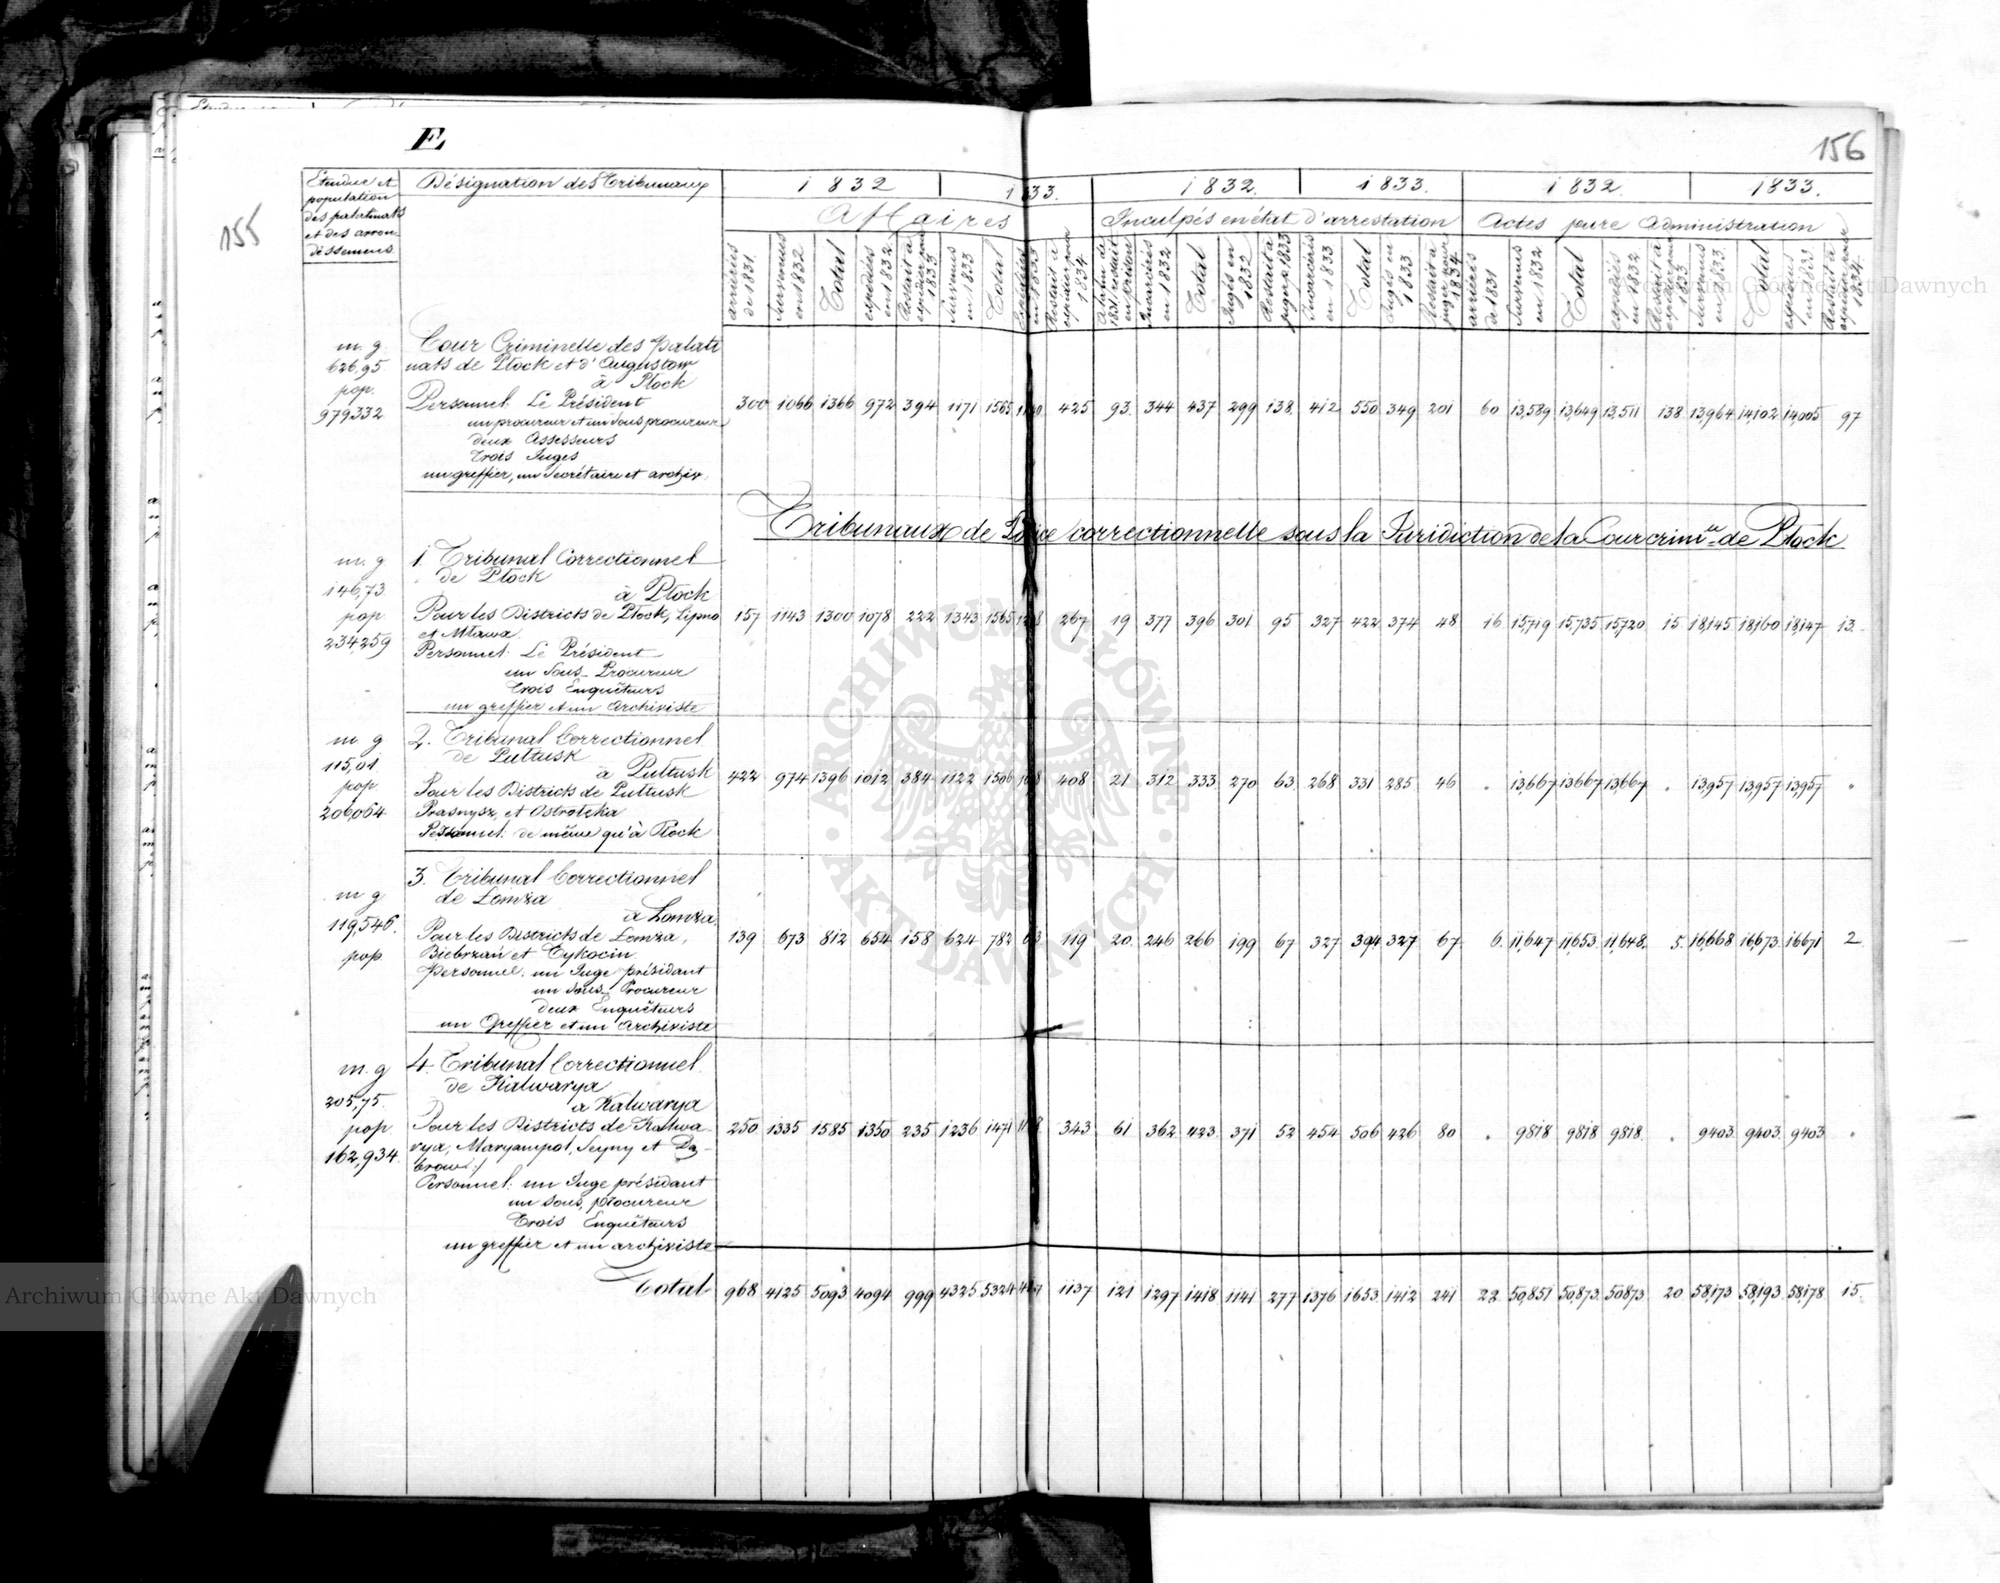 E
156
155
Etendue et
population
des palatinats
et des arron-
dissemens
Désignation des Tribunaux
1832
1833.
1832.
1833.
1832.
1833.
Affaires
Inculpés en état d'arrestation
Actes pure Administration
arriérés de 1831.
Survenus en 1832
Total
expédiées en 1832.
Restait à expédier pour 1833
Survenus en 1833
Total
Restait à expédier pour 1834.
Incarcérés en 1832
Total
Jugés en 1832
Restait à juger p. 1833
Incarcérés en 1833
Total
Jugés en 1833.
Restait à juger pour 1834.
arriérés de 1831
Survenus en 1832
Total
expédiés en 1832.
Restait à expédier pour 1833
Survenus en 1833.
Total
expédiés en 1833.
Restait à expédier pour 1834.
m. g.
626,95
pop.
979332
Cour Criminelle des Palati
nats de Płock et d'Augustow
à Płock
Personnel. Le Président
un procureur et un Sous procureur
deux Assesseurs
Trois Juges
un greffier, un Secrétaire et archiv.
300 1066 1366 972 394 1171 1565 425 93. 344 437 299 138. 412 550 349 201 60 13,589 13,649 13,511 138 13,964 14,102 14,005 97
Tribunaux de Police correctionnelle sous la Juridiction de la Cour crim.lle de Płock
m. g
146,73.
pop
234,259
1. Tribunal Correctionnel
de Płock
à Płock
Pour les Districts de Płock, Lipno
et Mława.
Personnel. Le Président
un Sous-Procureur
Trois Enquêteurs
un greffier et un Archiviste
157 1143 1300 1078 222 1343 1565 267 19 377 396 301 95 327 422 374 48 16 15,719 15,735 15,720. 15 18,145 18,160 18,147 13.
m. g
115,01.
pop.
206,064
2. Tribunal Correctionnel
de Pułtusk
à Pułtusk
Pour les Districts de Pułtusk
Prasnysz, et Ostrołęka
Personnel. de même qu'à Płock
422 974 1396 1012 384 1122 1506 408 21 312 333 270 63. 268 331 285 46 " 13,667 13,667 13,667 " 13,957 13,957 13,957 "
m g
119,546.
pop
3. Tribunal Correctionnel
de Łomza
à Łomza.
Pour les Districts de Łomza,
Biebrzań et Tykocin.
Personnel. un Juge présidant
un Sous-Procureur
deux Enquêteurs
un Greffier et un Archiviste
139 673 812 654 158 624 782 119 20. 246 266 199 67 327 394 327 67 6. 11,647 11,653 11,648. 5. 16,668 16,673 16,671 2
m. g
205,75.
pop
162,934.
4. Tribunal Correctionnel
de Kalwarya
à Kalwarya
Pour les Districts de Kalwa-
rya, Maryampol, Seyny et Dą-
brow:/
Personnel. un Juge présidant
un Sous, procureur
Trois Enquêteurs
un greffier et un archiviste
250 1335 1585 1350 235 1236 1471 343 61 362 423 371 52 454 506 426 80 " 9818 9818 9818. " 9403. 9403. 9403 "
Total 968 4125 5093 4094 999 4325 5324 1137 121 1297 1418 1141 277 1376 1653 1412 241 22. 50,851 50,873. 50873 20 58,173 58,193. 58,178 15.
Archiwum Główne Akt Dawnych
Archiwum Główne Akt Dawnych
· ARCHIWUM GŁÓWNE · AKT DAWNYCH